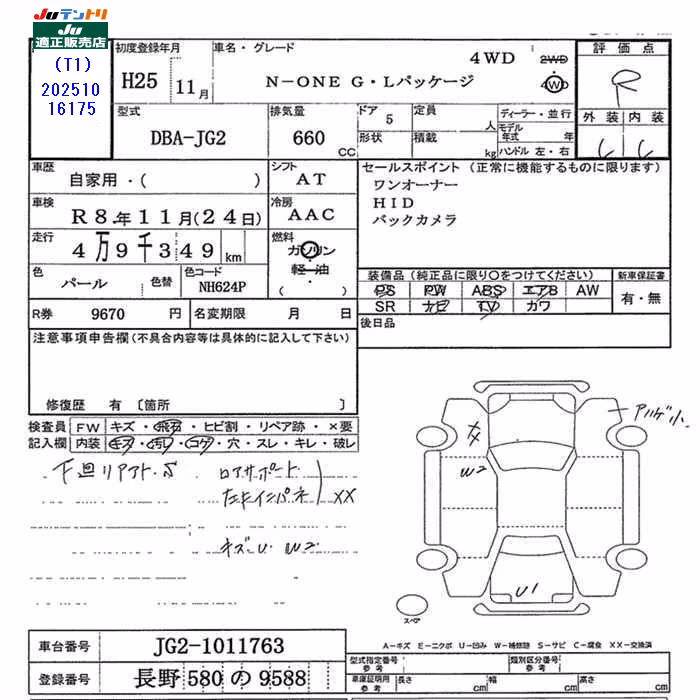 Juテントリ
Ju
適正販売店
(T1)
202510
16175
初度登録年月
H25 11月
車名・グレード
4WD
N-ONE G・Lパッケージ
2WD
4WD
評価点
R
外装 内装
型式
DBA-JG2
排気量
660
CC
ドア
5
形状
定員
人
積載
kg
ディーラー・並行
モデル年式 年
ハンドル 左・右
車歴
自家用・( )
シフト
AT
車検
R8.年11月(24日)
冷房
AAC
走行
4万9千349 km
燃料
ガソリン
軽・油
( )
色
パール
色替
色コード
NH624P
セールスポイント (正常に機能するものに限ります)
ワンオーナー
HID
バックカメラ
装備品 (純正品に限り○をつけてください)
PS PW ABS エアB AW
SR ナビ TV カワ
新車保証書
有・無
後日品
R券 9670 円
名変期限 月 日
注意事項申告欄 (不具合内容等は具体的に記入して下さい)
修復歴 有 〔箇所 〕
検査員記入欄
FW キズ・飛石・ヒビ割・リペア跡・×要
内装 キズ・汚レ・コゲ・穴・スレ・キレ・破レ
下回リアアト.S
ロアサポート
左ヒインパネ
XX
キズ・U W2
W2
U1
スペア
車台番号 JG2-1011763
登録番号 長野 580 の 9588
A-キズ E-エクボ U-凹み W-補修跡 S-サビ C-腐食 XX-交換済
型式指定番号
参考
類別区分番号
参考
車庫証明用
参考
長さ cm
幅 cm
高さ cm